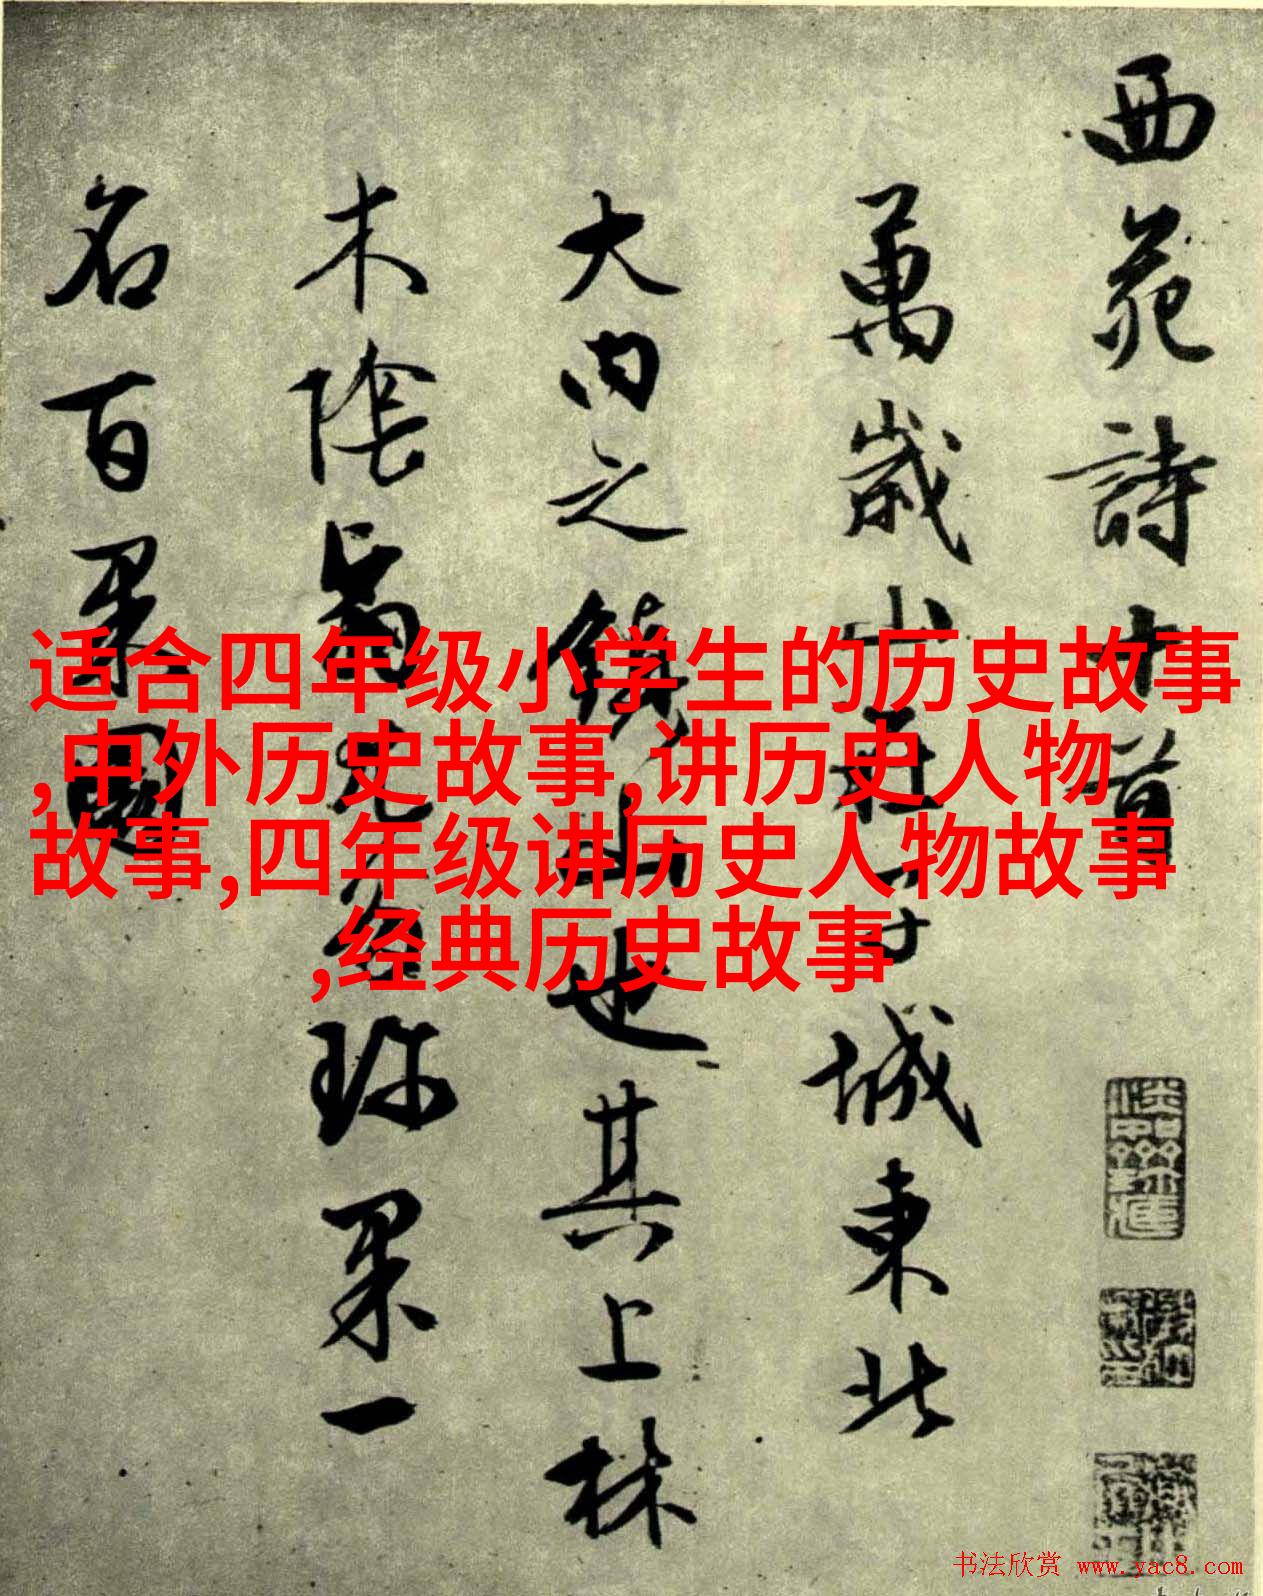 西苑詩十首
萬歲山在子城東北
大内之鎮山也其上林
木陰翳尤多珍果一
名百果園
适合四年级小学生的历史故事
,中外历史故事,讲历史人物
故事,四年级讲历史人物故事
,经典历史故事
书法欣赏 www.yac8.com